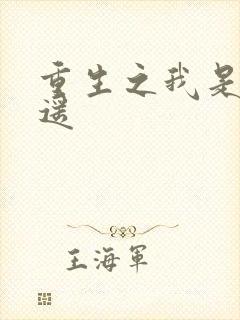 重生之我是
遥
王海军